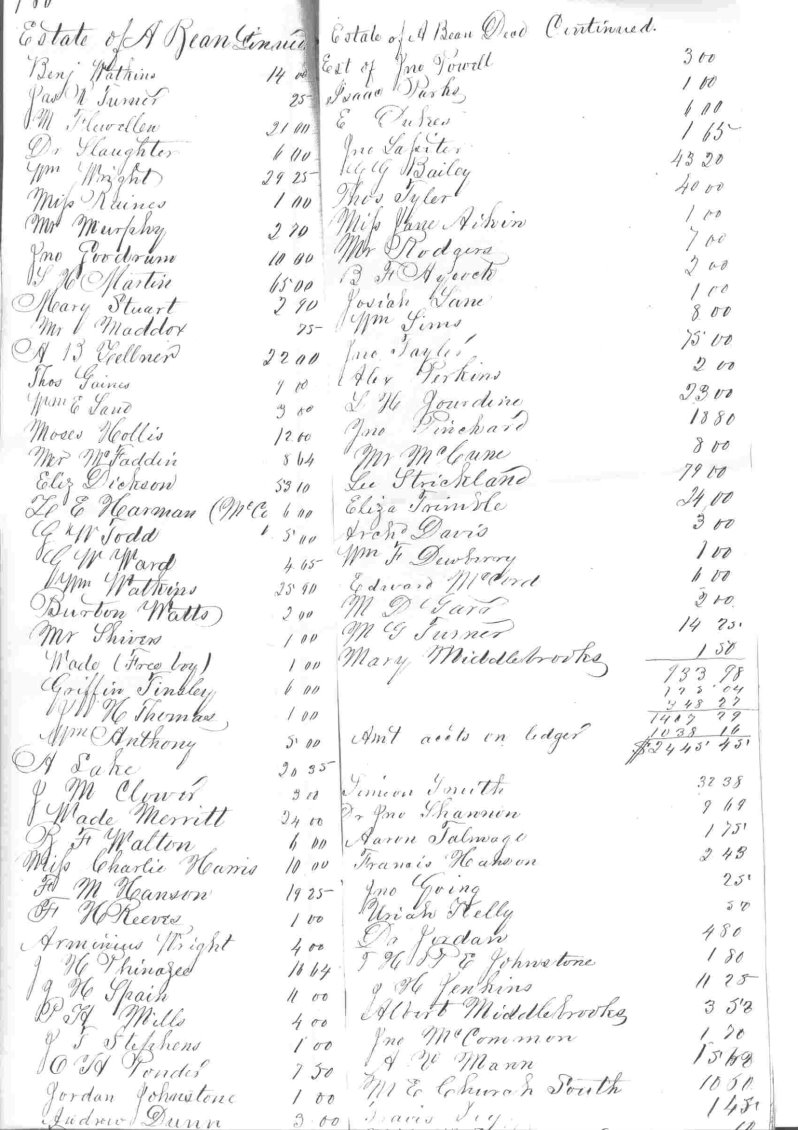 Estate of A Bean
Benj Watkins 14 00
Jas N Turner 25
M Flewellen 21 00
Dr Slaughter 6 00
Wm Wright 29 25
Miss Raines 1 00
Mr Murphy 2 70
Jno Goodrum 10 00
S H Martin 65 00
Mary Stuart 2 90
Mr Maddox 75
A B Zellner 22 00
Thos Gaines
Wm E Sand 3 00
Moses Hollis 12 00
McFaddin 8 64
Eliz Dickson 53 10
E Harman (McC 6 00
G W Todd 5 00
G W Ward 4 65
Wm Watkins 25 90
Burton Watts 2 00
Mr Shivers 1 00
Wade (Free boy) 1 00
Griffin Tinsley 6 00
H Thomas 1 00
Wm Anthony 5 00
A Lake 20 35
J M Clower 3 00
Wade Merritt 24 00
R F Walton 6 00
Miss Charlie Harris 10 00
F M Hanson 19 25
F H Reeves 1 00
Arminius Wright 4 00
J H Phinazee 16 64
J H Spain 11 00
P H Mills 4 00
J T Stephens 1 00
O H Ponder 7 50
Jordan Johnstone 1 00
Andrew Dunn 3 00
Estate of A Bean Dead Continued.
Est of Jno Powell 3 00
Isaac Parks 1 00
E Dukes 6 00
Jno Lasiter 1 65
Bailey 43 20
Thos Tyler 40 00
Miss Jane Aikin 1 00
Mr Rodgers 7 00
B F Aycock 2 00
Josiah Lane 1 00
Wm Sims 8 00
Jno Tayler 75 00
Alex Perkins 2 00
L H Jourdine 23 00
Jno Pinchard 18 80
Mr McCune 8 00
Lee Strickland 79 00
Eliza Trimble 24 00
Archd Davis 3 00
Wm F Dewberry 1 00
Edward McCord 6 00
M D Gard 2 00
M G Turner 14 25
Mary Middlebrooks 1 50
933 98

1407 29
1038 16
Amt accts on ledger $2445 45
Simeon Smith 32 38
Dr Jno Shannon 9 69
Aaron Talmage 1 75
Francis Hanson 2 43
Jno Going 25
Uriah Kelly 50
Dr Jordan 4 80
E Johnstone 1 80
J H Jenkins 11 25
Albert Middlebrooks 3 53
Jno McCommon 1 70
A Mann
M E Church South 10 50
Travis Ivy 1 45